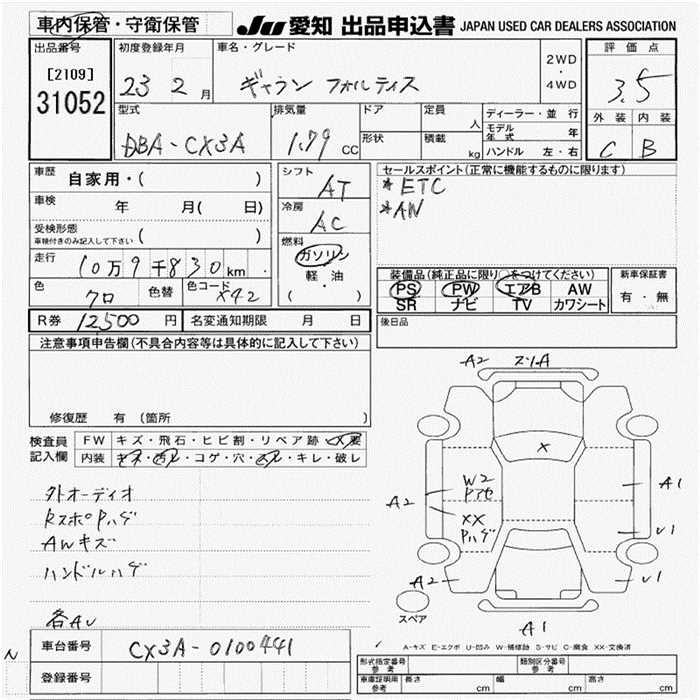 車内保管・守衛保管
JU 愛知 出品申込書 JAPAN USED CAR DEALERS ASSOCIATION
出品番号
[2109]
31052
初度登録年月
23 2 月
車名・グレード
ギャラン フォルティス
2WD
・
4WD
評価点
3.5
外装 内装
C B
型式
DBA-CX3A
排気量
1.79 CC
ドア
形状
定員
人
積載
kg
ディーラー・並行
モデル年式 年
ハンドル 左・右
車歴
自家用・( )
車検
年 月( 日)
受検形態
車検付きのみ記入して下さい ( )
走行
10万9千830km
色
クロ
色替
色コード
X42
シフト
AT
冷房
AC
燃料
ガソリン
軽・油
( )
セールスポイント(正常に機能するものに限ります)
*ETC
*AW
装備品(純正品に限り○をつけてください)
PS PW エアB AW
SR ナビ TV カワシート
新車保証書
有・無
R券 12500 円
名変通知期限 月 日
後日品
注意事項申告欄(不具合内容等は具体的に記入して下さい)
修復歴 有(箇所 )
検査員
記入欄
FW キズ・飛石・ヒビ割・リペア跡・X要
内装 キズ・汚レ・コゲ・穴・スレ・キレ・破レ
外オーディオ
RスポPハゲ
AWキズ
ハンドルハゲ
各AU
N
車台番号 CX3A-0100441
登録番号
A2
X
W2
A2
XX
Pハゲ
A1
U1
A2
U1
スペア
A1
A-キズ E-エクボ U-凹み W-補修跡 S-サビ C-腐食 XX-交換済
形式指定番号
参考
類別区分番号
参考
車庫証明用
参考
長さ cm
幅 cm
高さ cm